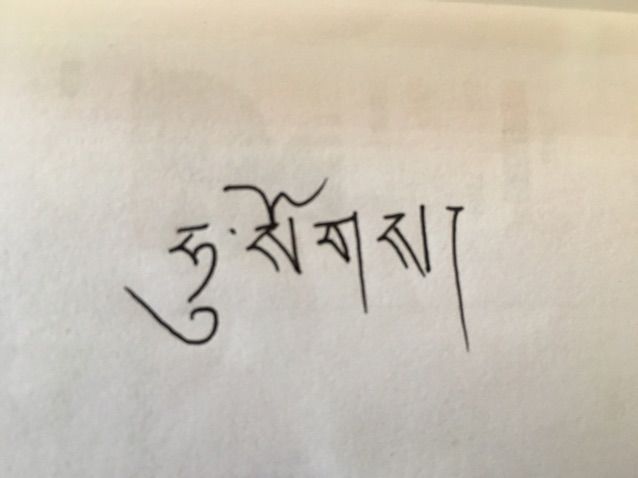 ཏུ་སོགས།